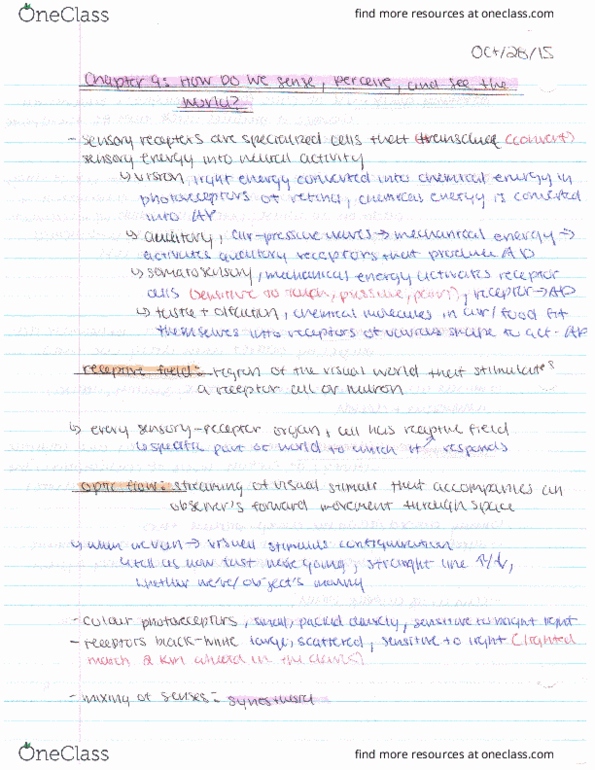 OneClass
find more resources at oneclass.com
Oct/28/15
Chapter 9: How Do We sense, perceive, and see the
world?
- sensory receptors are specialized cells that transduce (convert)
sensory energy into neural activity
↳ vision, light energy converted into chemical energy in
photoreceptors of retina, chemical energy is converted
into AP
↳ auditory, air-pressure waves → mechanical energy →
activates auditory receptors that produce AP
↳ somatosensory, mechanical energy activates receptor
cells (sensitive to touch, pressure, pain), receptor → AP
↳ taste + olfaction, chemical molecules in air/food fit
themselves into receptors of various shape to act - AP
receptive field: - region of the visual world that stimulates
a receptor cell or neuron
↳ every sensory-receptor organ, cell has receptive field
↳ specific part of world to which it responds
optic flow: streaming of visual stimuli that accompanies an
observer's forward movement through space
↳ when we run → visual stimulus configuration
↳ tell us how fast we're going, straight line ↑/↓,
whether we're/object's moving
- colour photoreceptors, small, packed densely, sensitive to bright light
- receptors black-white large, scattered, sensitive to light (lighted
match 2 km ahead in the dark)
- mixing of senses:
OneClass
find more resources at oneclass.com